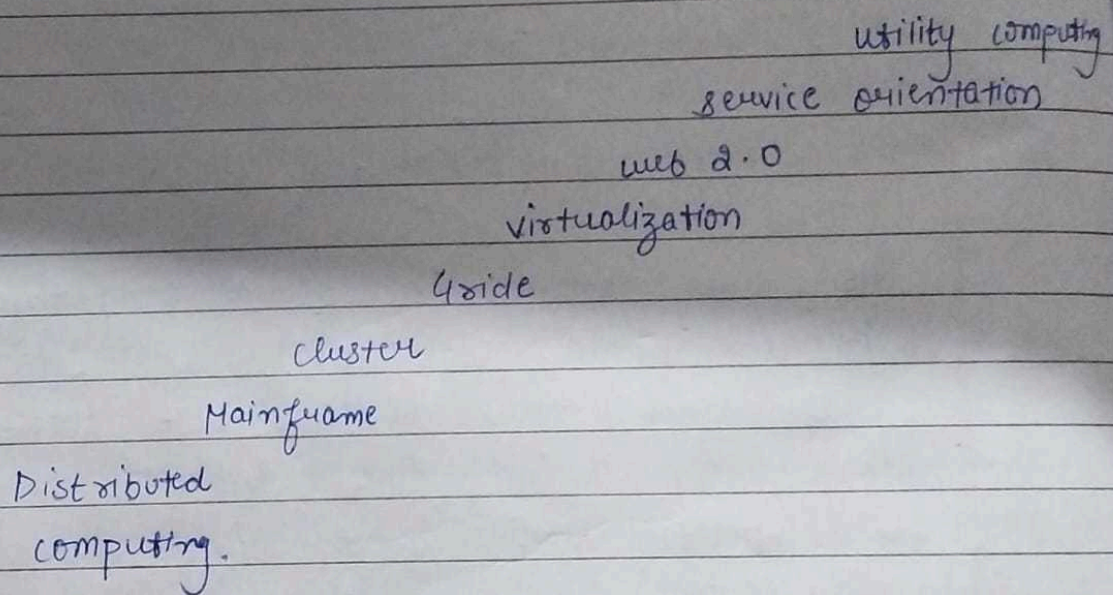 utility computing
service orientation
web 2.0
virtualization
Gride
cluster
Mainframe
Distributed
computing.